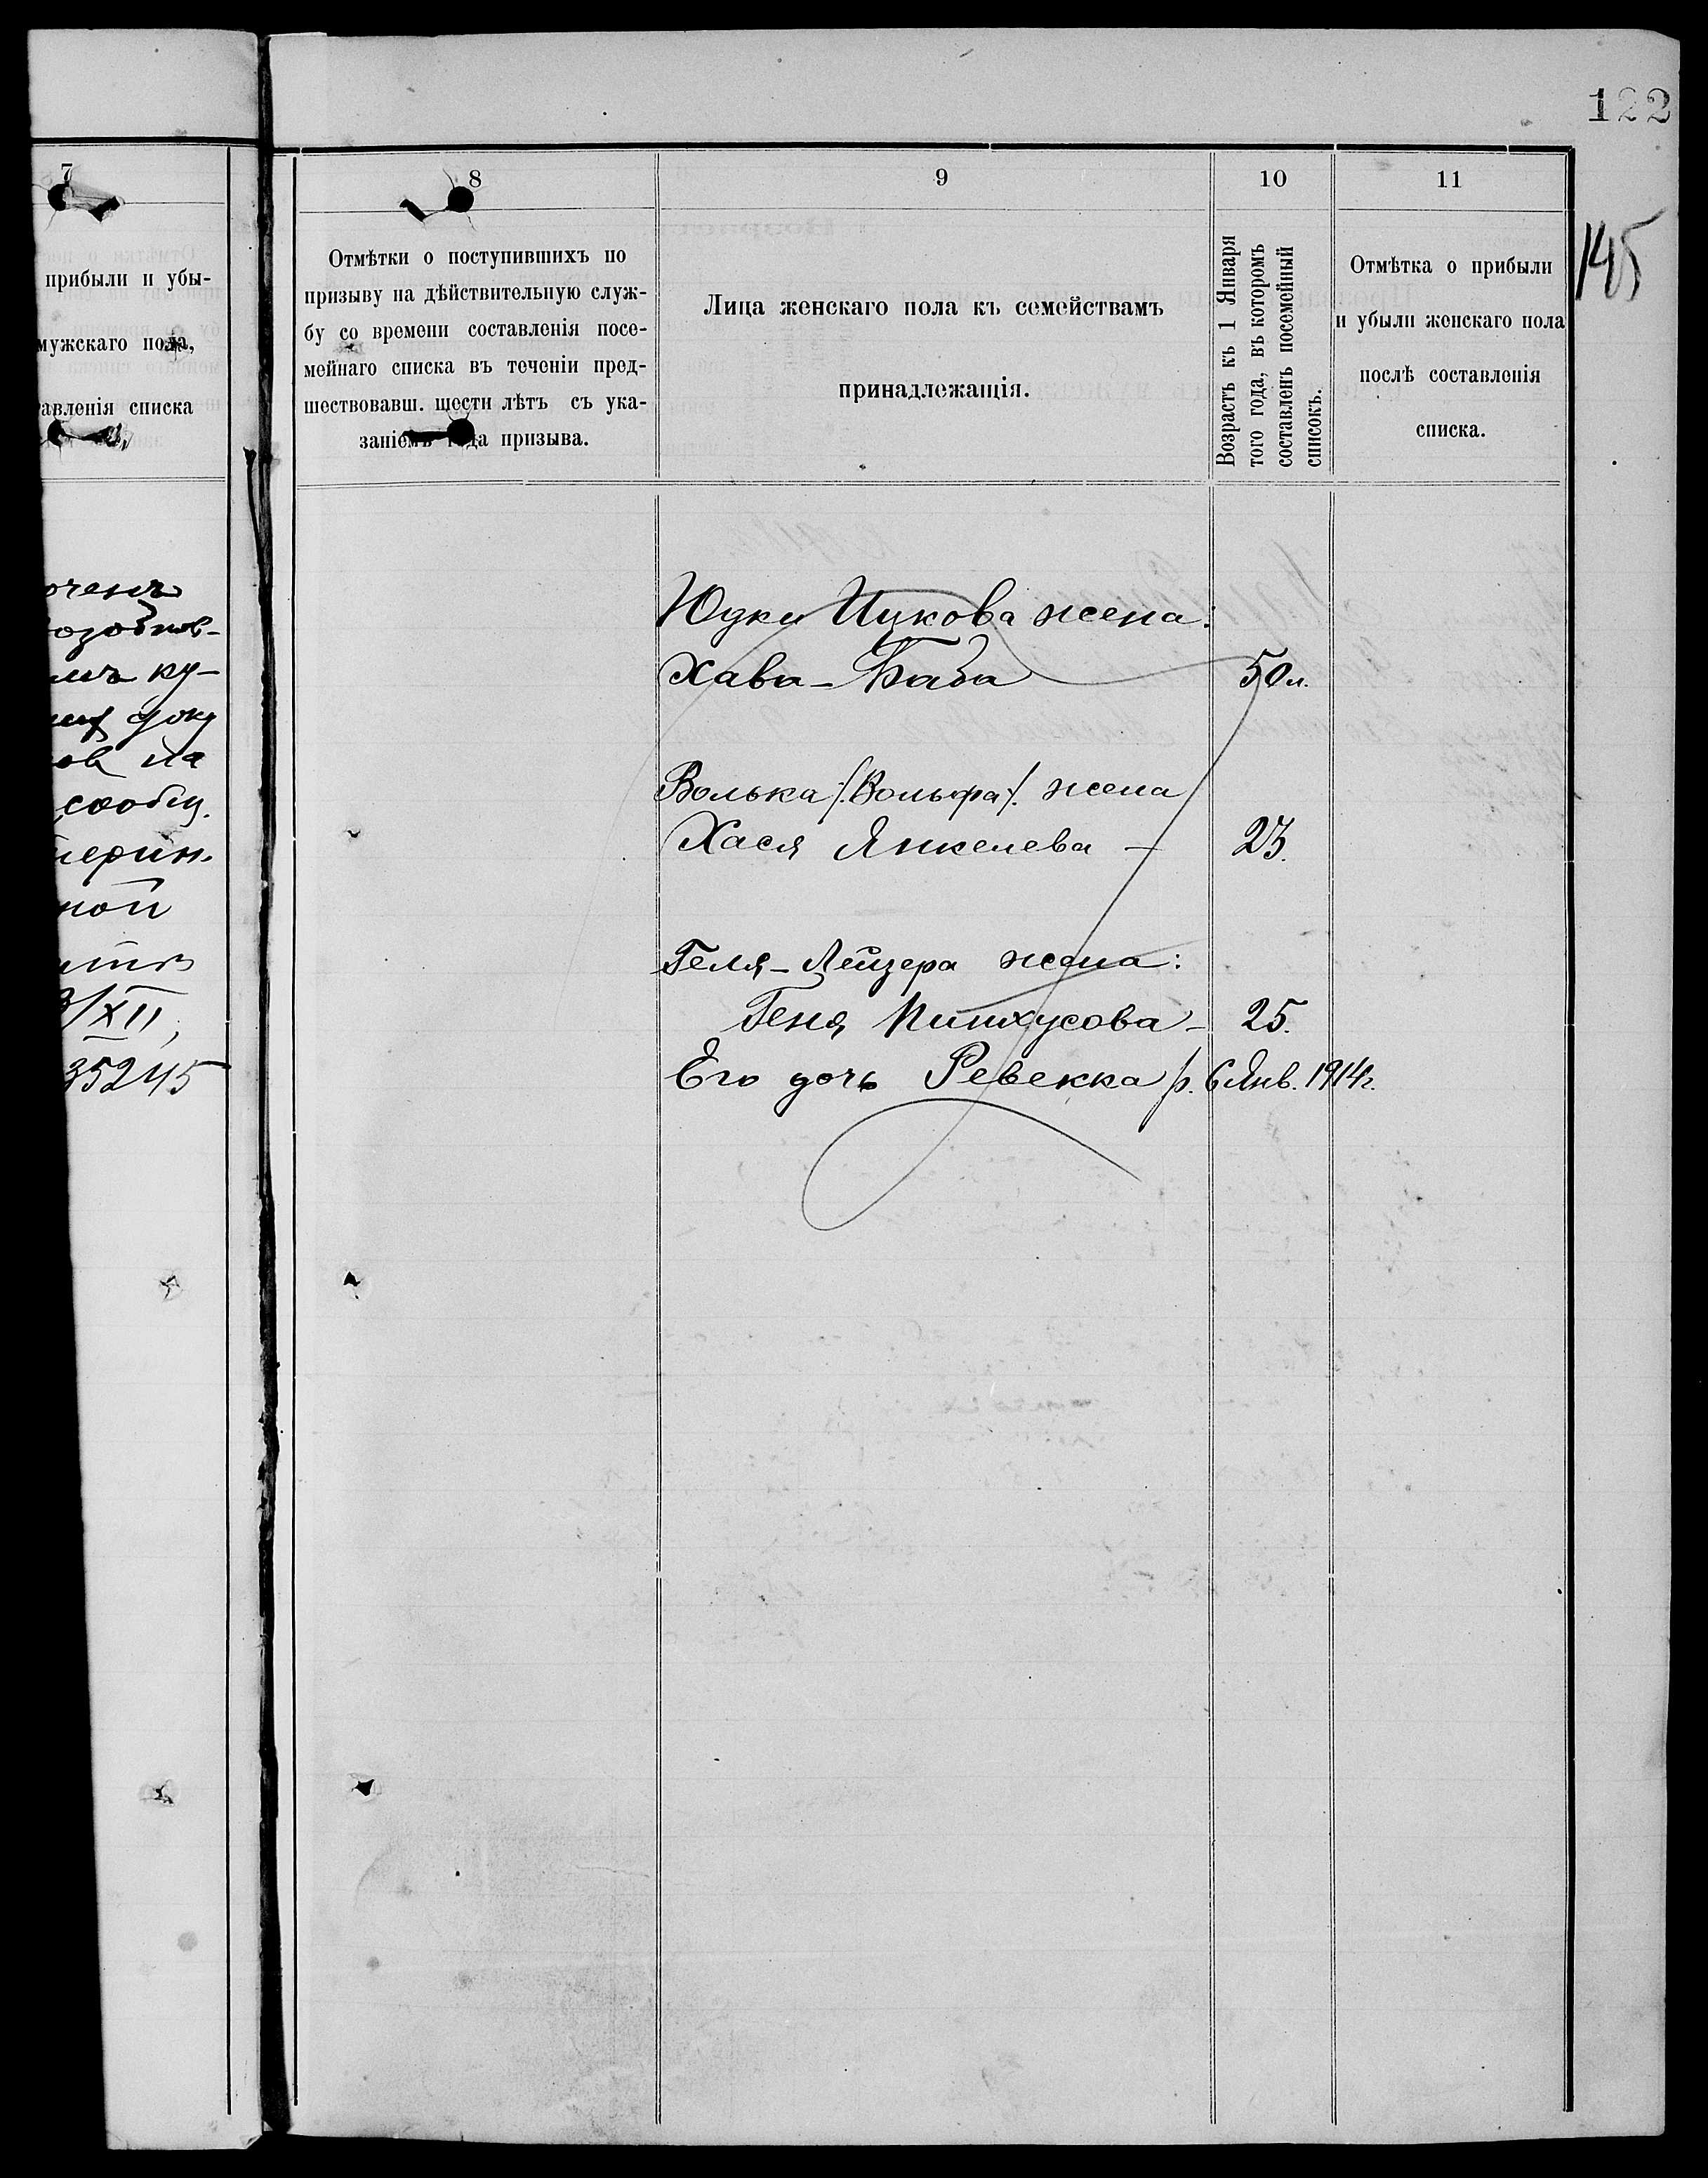 122
145
7
прибыли и убы-
мужскаго пола,
авленія списка
озобнов-
ку-
доку
на
сообщ.
ной
/XII,
35245
8
Отмѣтки о поступившихъ по
призыву на дѣйствительную служ-
бу со времени составленія посе-
мейнаго списка въ теченіи пред-
шествовавш. шести лѣтъ съ ука-
заніемъ года призыва.
9
Лица женскаго пола къ семействамъ
принадлежащія.
10
Возрастъ къ 1 Января
того года, въ которомъ
составленъ посемейный
списокъ.
11
Отмѣтка о прибыли
и убыли женскаго пола
послѣ составленія
списка.
Юдки Ицкова жена:
Хава-Баба 50 л.
Волька /:Вольфа/: жена
Хася Янкелева - 23.
Геля-Лейзера жена:
Геня Пинхусова - 25.
Его дочь Ревекка р. 6 Янв. 1914 г.